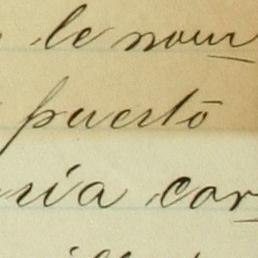 le nom
puerto
ria cor